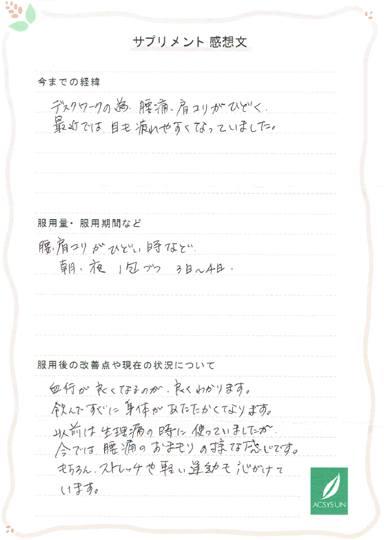 サプリメント 感想文
今までの経緯
デスクワークの為、腰痛、肩コリがひどく、
最近では 目も疲れやすくなっていました。
服用量・服用期間など
腰、肩コリがひどい時など
朝・夜 1包づつ 3日〜4日。
服用後の改善点や現在の状況について
血行が良くなるのが、良くわかります。
飲んですぐに身体があたたかくなります。
以前は生理痛の時に使っていましたが、
今では腰痛のおまもりの様な感じです。
もちろん、ストレッチや軽い運動も心がけて
います。
ACSYSUN